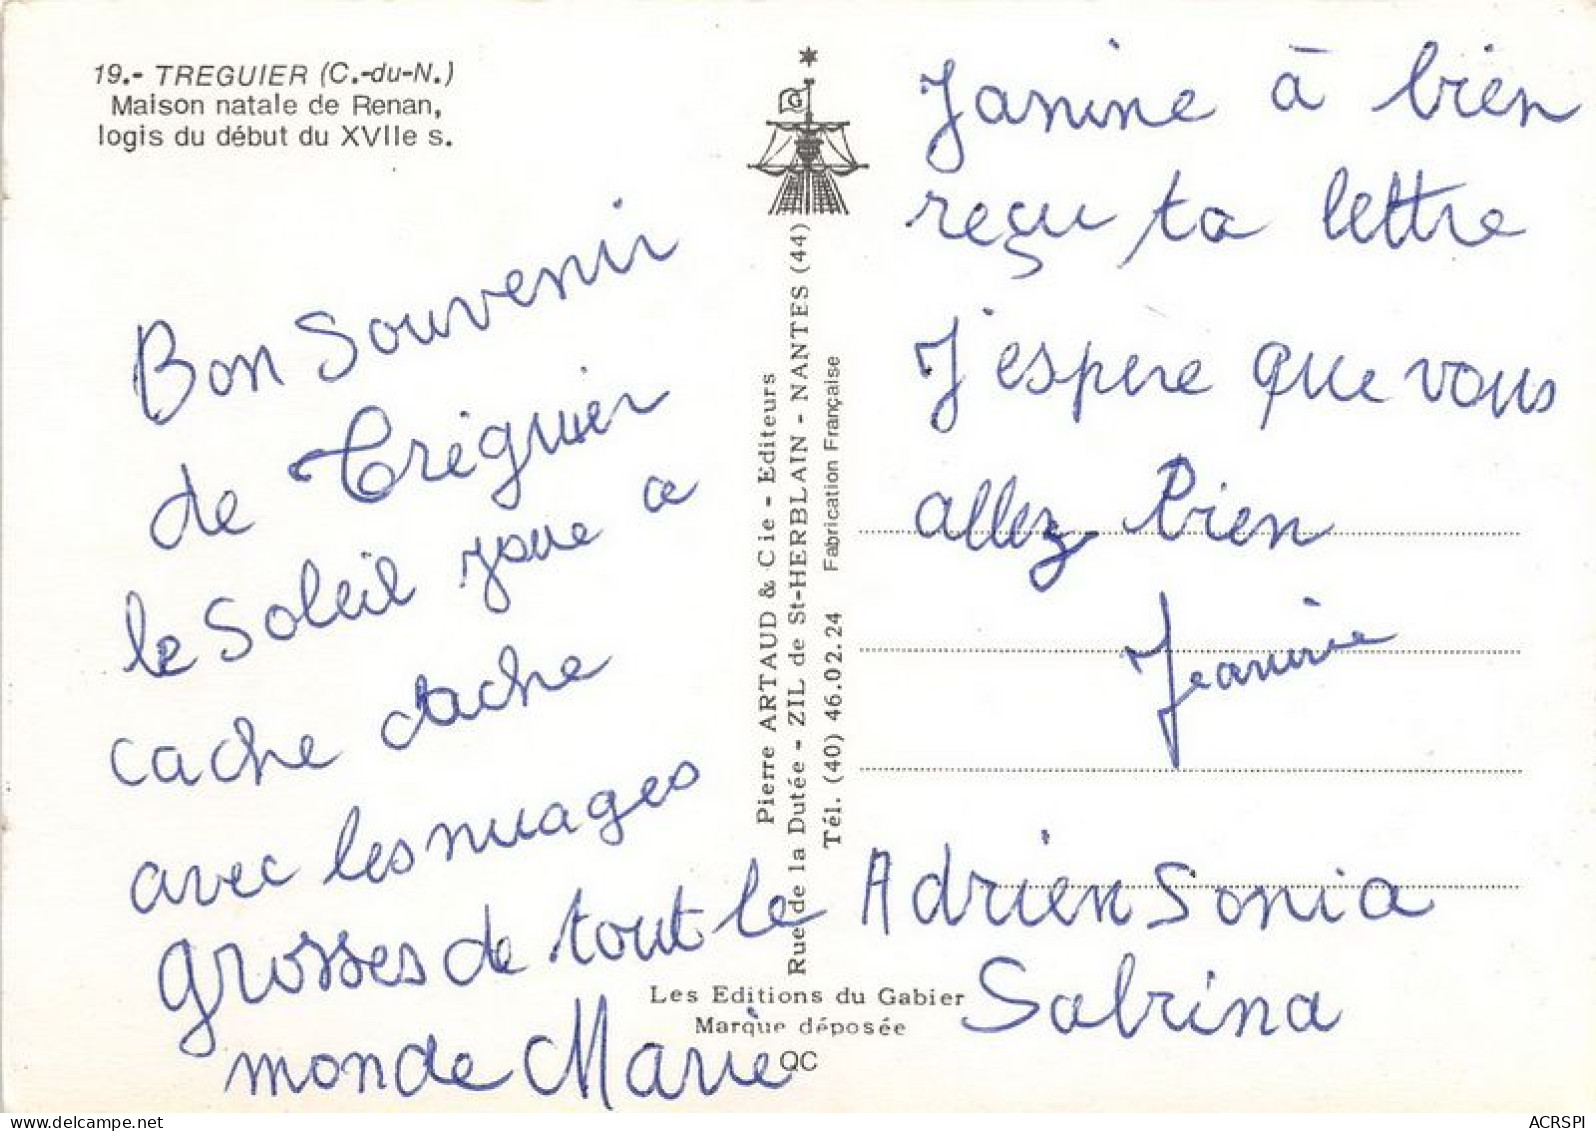 19.- TREGUIER (C.-du-N.)
Maison natale de Renan,
logis du début du XVIIe s.
Bon Souvenir
de Tréguier
le Soleil joue a
cache cache
avec les nuages
grosses de tout le
monde Marie
Pierre ARTAUD & Cie - Editeurs
Rue de la Dutée - ZIL de St-HERBLAIN - NANTES (44)
Tél. (40) 46.02.24 Fabrication Française
Les Editions du Gabier
Marque déposée
QC
Janine à bien
reçu ta lettre
J'espère que vous
allez bien
Jeannie
Adrien Sonia
Sabrina
ACRSPI